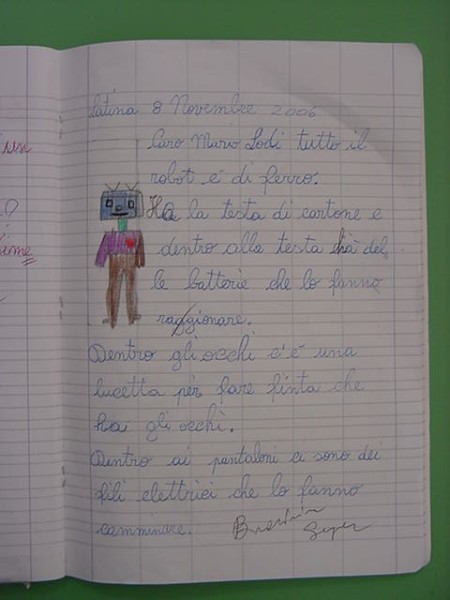 Latina 8 Novembre 2006
Caro Mario Lodi tutto il
robot è di ferro.
Ha la testa di cartone e
dentro alla testa ha del
le batterie che lo fanno
raggionare.
Dentro gli occhi c'è una
lucetta per fare finta che
hai gli occhi.
Dentro ai pantaloni ci sono dei
fili elettrici che lo fanno
camminare.